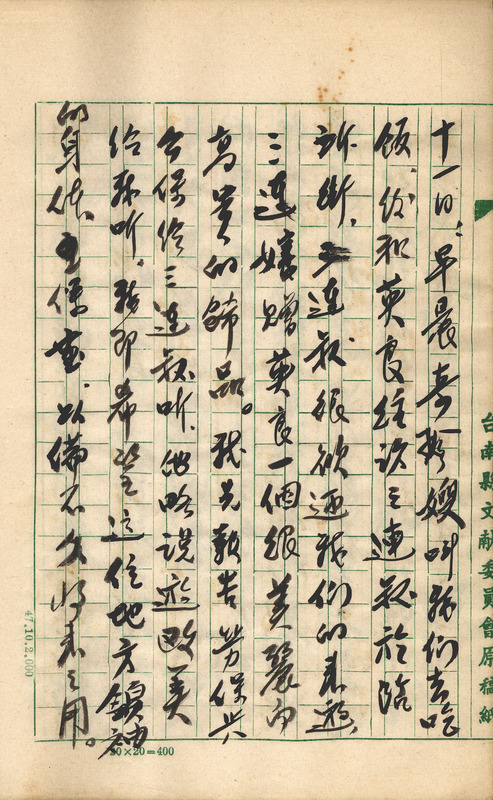 台南縣文献委員會原稿紙
十一日:早晨喜彩嫂叫我們去吃
飯,飯後和英良經訪三連叔於臨
沂街,三連叔很欣迎我們的來遊,
三連嬸贈英良一個很美麗而
高貴的飾品。我先報告勞保與
公保給三連叔听,他略說遊歐美
給我听,我即希望這位地方領袖
的身体,重保重,以備不久將來之用。
20×20=400
47.10.2.000